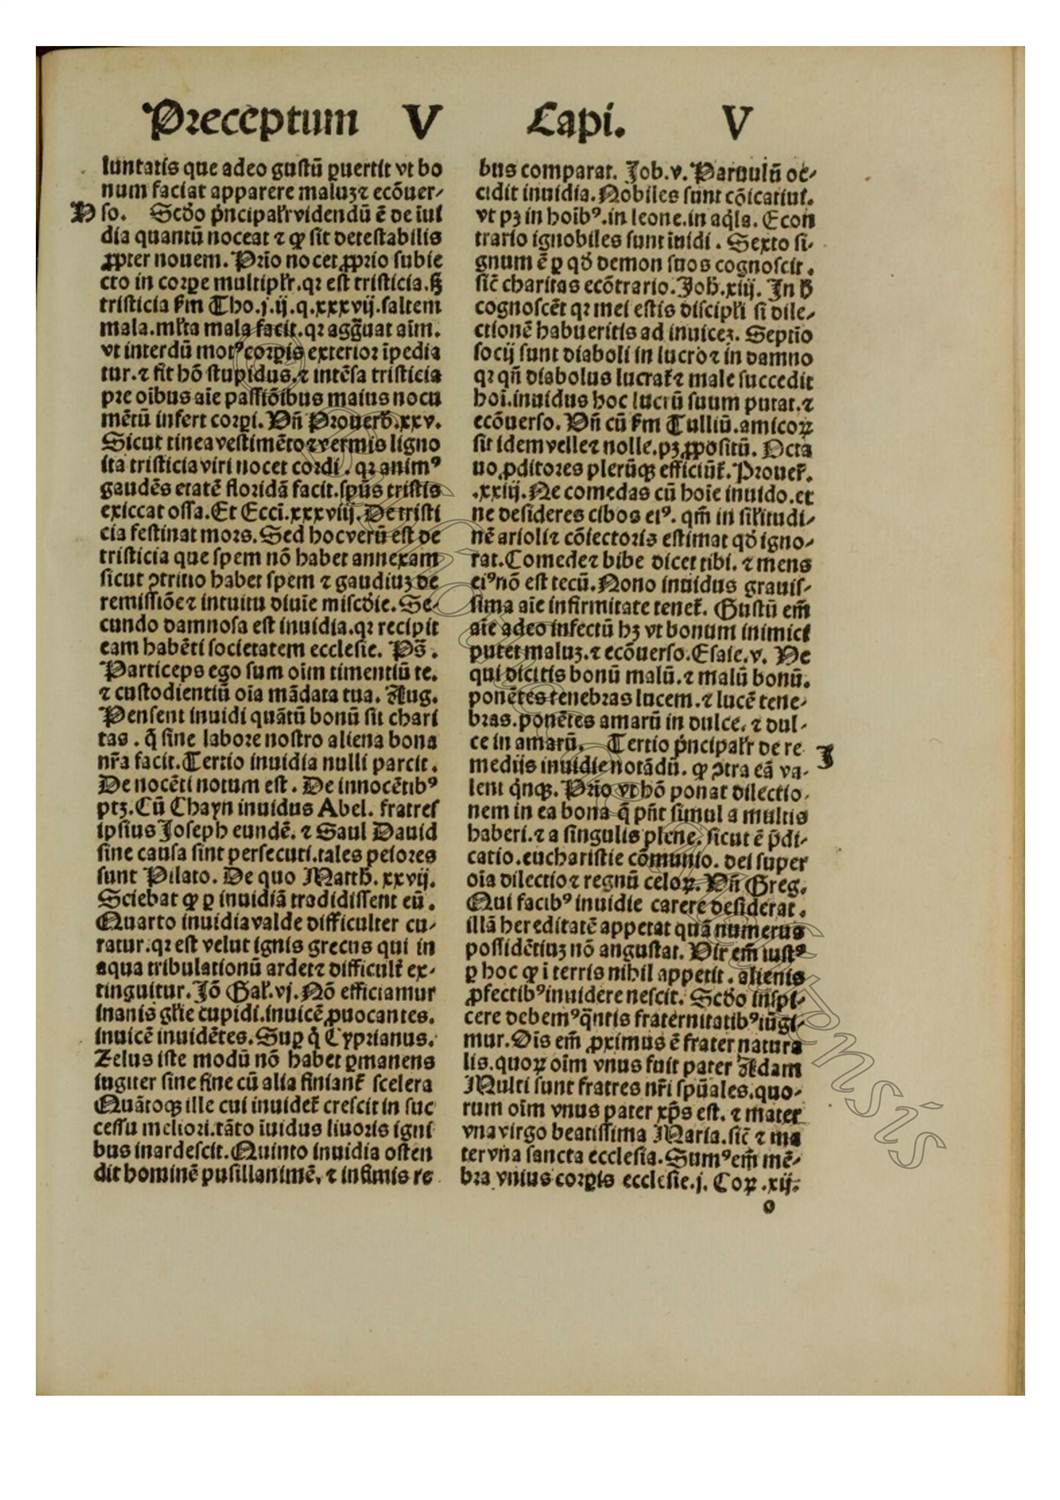 Preceptum V Capi. V
luntatis que adeo gustū ꝑuertit vt bo
num faciat apparere maluʒ⁊ ecōuer⸗
H so. Scd̄o pͥncipalr̄ videndū ē de īui
dia quantū noceat ⁊ ꝙ sit detestabilis
ꝓpter nouem. Prīo nocet ꝓprio subie
cto in corꝑe multiplr̄.qꝛ est tristicia.sꝫ
tristicia sm̄ Tho.j.ij.q.xxxvij.saltem
mala.ml̄ta mala facit.qꝛ agḡuat aīm.
vt interdū motꝰ corꝑis exterioꝛ īpedia
tur.⁊ fit hō stupidus.⁊ intēsa tristicia
pre oībus aīe passiōibus maius nocu
mētū infert corꝑi. Vn̄ Prouerb̄.xxv.
Sicut tinea vestimēto⁊vermis ligno
ita tristicia viri nocet cordi. qꝛ animꝰ
gaudēs etatē floridā facit.sp̄us tristis
exiccat ossa.Et Ecci̅.xxxviij. De tristi
cia festinat mors.Sed hoc verū est de
tristicia que spem nō habet annexam
sicut ꝯtritio habet spem ⁊ gaudiuʒ de
remissiōe⁊ intuitu diuīe miscd̄ie. Se⸗
cundo damnosa est inuidia.qꝛ recipit
eam habēti societatem ecclesie. Ps̄.
Particeps ego sum oīm timentiū te.
⁊ custodientiū oīa mādata tua. Aug.
Pensent inuidi quātū bonū sit chari
tas. q̄ sine labore nostro aliena bona
nr̄a facit.Tertio inuidia nulli parcit.
De nocēti notum est. De innocētibꝰ
ptʒ.Cū Chayn inuidus Abel. fratres
ipsius Joseph eundē. ⁊ Saul Dauid
sine causa sint persecuti.tales peiores
sunt Pilato. De quo Matth̄.xxvij.
Sciebat ꝙ ꝑ inuidiā tradidissent eū.
Quarto inuidia valde difficulter cu⸗
ratur.qꝛ est velut ignis grecus qui in
aqua tribulationū ardet⁊ difficult̄ ex⸗
tinguitur. Jō Gal̄.vj. Nō efficiamur
inanis gl̄ie cupidi.inuicē ꝓuocantes.
inuicē inuidētes. Suꝑ q̊ Cyprianus.
Zelus iste modū nō habet ꝑmanens
iugiter sine fine cū alia finiant̄ scelera
Quātoqꝫ ille cui inuidet̄ crescit in suc
cessu meliori.tāto īuidus liuoris igni
bus inardescit. Quinto inuidia osten
dit hominē pusillanimē. ⁊ infimis re
bus comparat. Job.v. Paruulū oc⸗
cidit inuidia. Nobiles sunt cōicatiui.
vt pʒ in hoībꝰ.in leone.in aq̇la. Econ
trario ignobiles sunt īuidi. Sexto si⸗
gnum ē ꝑ qd̄ demon suos cognoscit.
sic̄ charitas ecōtrario. Joh̄.xiij. In h̄
cognoscēt qꝛ mei estis discipl̄i si dile⸗
ctionē habueritis ad inuiceʒ. Septīo
socij sunt diaboli in lucro⁊ in damno
qꝛ qn̄ diabolus lucrat̄⁊ male succedit
hoī.inuidus hoc lucrū suum putat.⁊
ecōuerso. Vn̄ cū sm̄ Tulliū.amicoꝝ
sit idem velle⁊ nolle.pʒ ꝓpositū. Octa
uo ꝓditores plerūqꝫ efficiūt̄. Prouer̄.
.xxiij. Ne comedas cū hoīe inuido.et
ne desideres cibos eiꝰ. qm̄ in sil̄itudi⸗
nē arioli⁊ cōiectoris estimat qd̄ igno⸗
rat. Comede⁊ bibe dicet tibi. ⁊ mens
eiꝰnō est tecū. Nono inuidus grauis⸗
sima aīe infirmitate tenet̄. Gustū em̄
aīe adeo infectū hʒ vt bonum inimici
putet maluʒ.⁊ ecōuerso. Esaie.v. Ve
qui dicitis bonū malū.⁊ malū bonū.
ponētes tenebras lucem.⁊ lucē tene⸗
bras.ponētes amarū in dulce. ⁊ dul⸗
ce in amarū. Tertio pͥncipalr̄ de re J
medijs inuidie notādū. ꝙ ꝯtra eā va⸗
lent qͥnqꝫ. Prīo vt hō ponat dilectio⸗
nem in ea bona q̄ pn̄t simul a multis
haberi.⁊ a singulis plene. sicut ē p̄di⸗
catio.eucharistie cōmunio. dei super
oīa dilectio⁊ regnū celoꝝ. Vn̄ Greg.
Qui facibꝰ inuidie carere desiderat.
illā hereditatē appetat quā numerus
possidētiuʒ nō angustat. Vir em̄ iustꝰ
ꝑ hoc ꝙ ī terris nihil appetit. alienis
ꝓfectibꝰinuidere nescit. Scd̄o inspi⸗
cere debemꝰ qͥntis fraternitatibꝰ iūgi⸗
mur. Oīs em̄ ꝓximus ē frater natura
lis.quoꝝ oīm vnus fuit pater Adam
Multi sunt fratres nr̄i sp̄uales.quo⸗
rum oīm vnus pater xp̄s est. ⁊ mater
vna virgo beatissima Maria.sic̄ ⁊ ma
ter vna sancta ecclesia. Sumꝰ em̄ mē⸗
bra vnius corꝑis ecclesie.j. Coꝝ.xij.
o